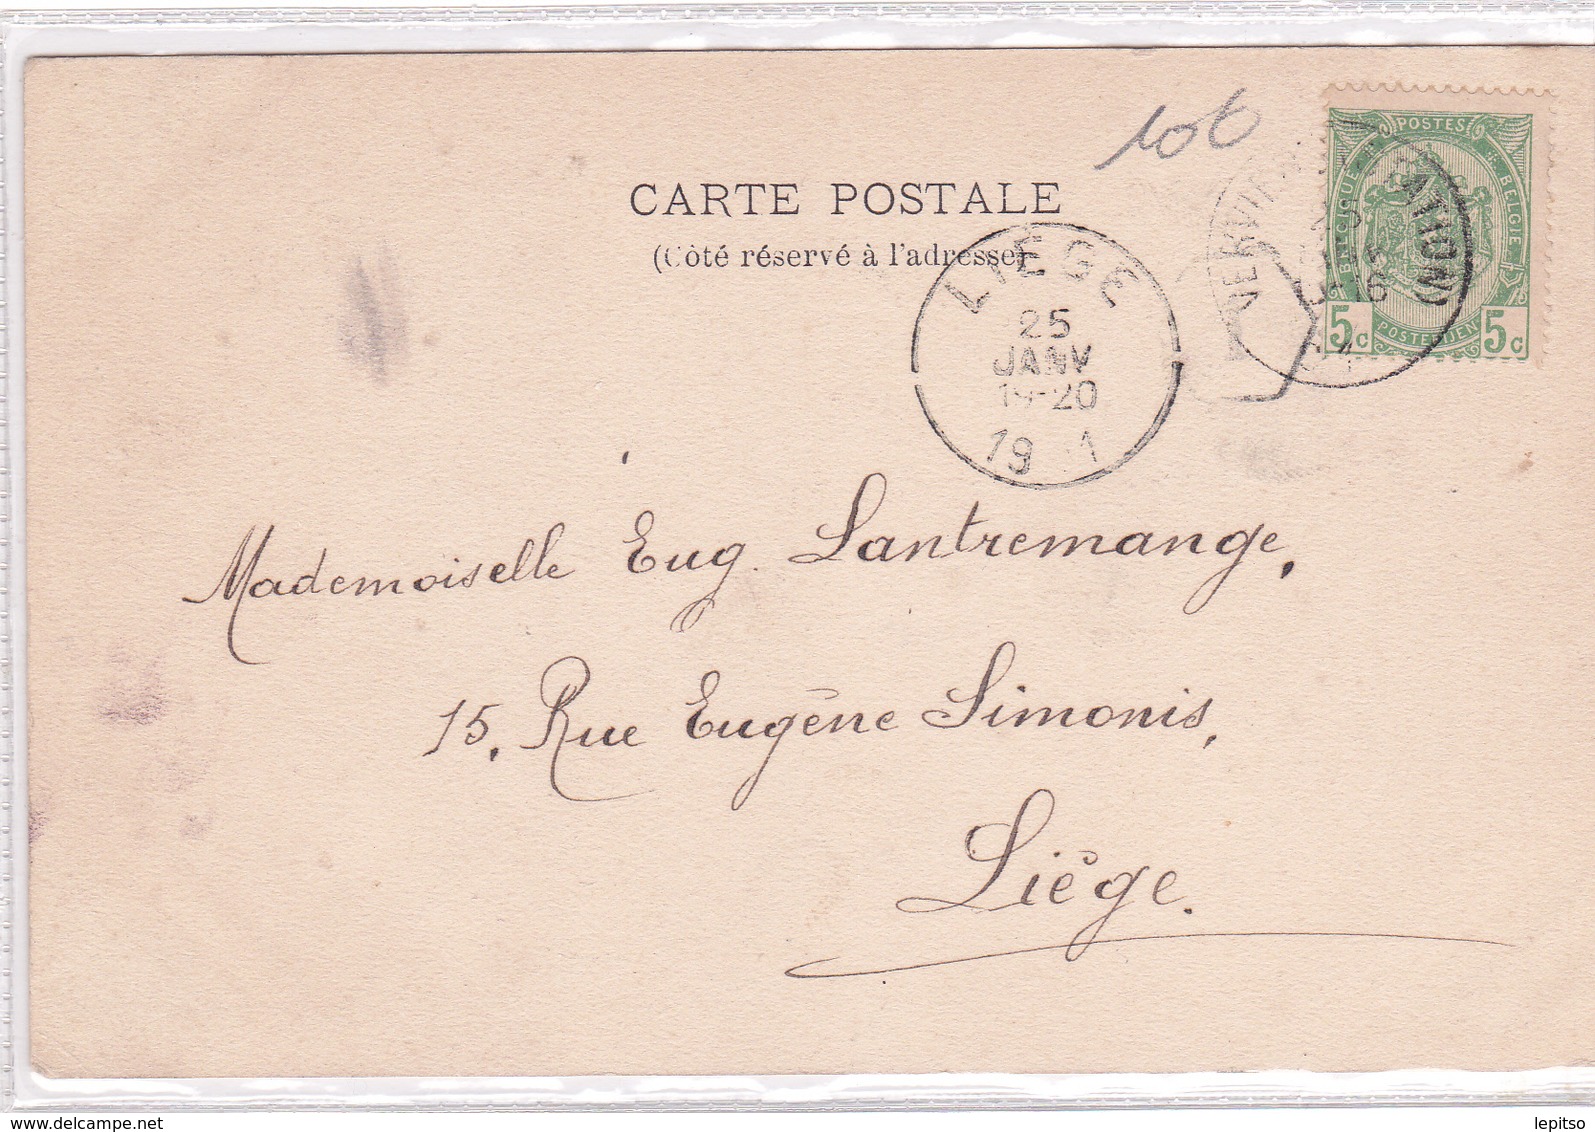 106
POSTES
BELGIQUE
BELGIE
CARTE POSTALE
(Côté réservé à l'adresse)
LIÈGE
25
JANV
19-20
19 1
5c
POSTERIJEN
5c
Mademoiselle Eug. Lantremange,
15, Rue Eugène Simonis,
Liège.
www.delcampe.net
lepitso